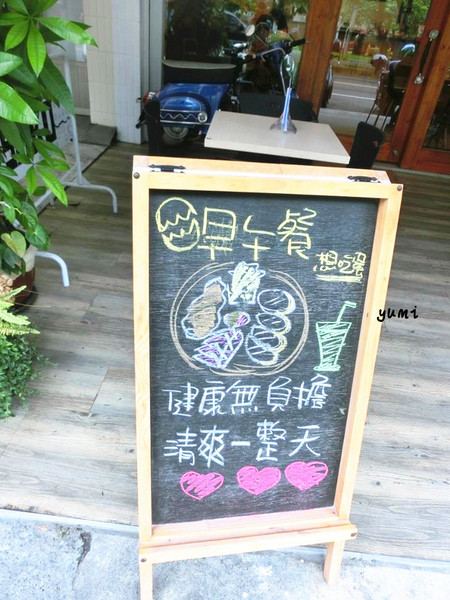 早午餐
想吃蛋
健康無負擔
清爽一整天
yumi